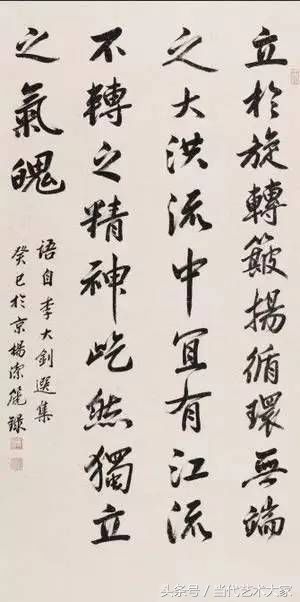 立於旋轉簸揚循環無端
之大洪流中宜有江流
不轉之精神屹然獨立
之氣魄
语自李大釗選集
癸巳於京楊潔篪録
头条号/当代艺术大家